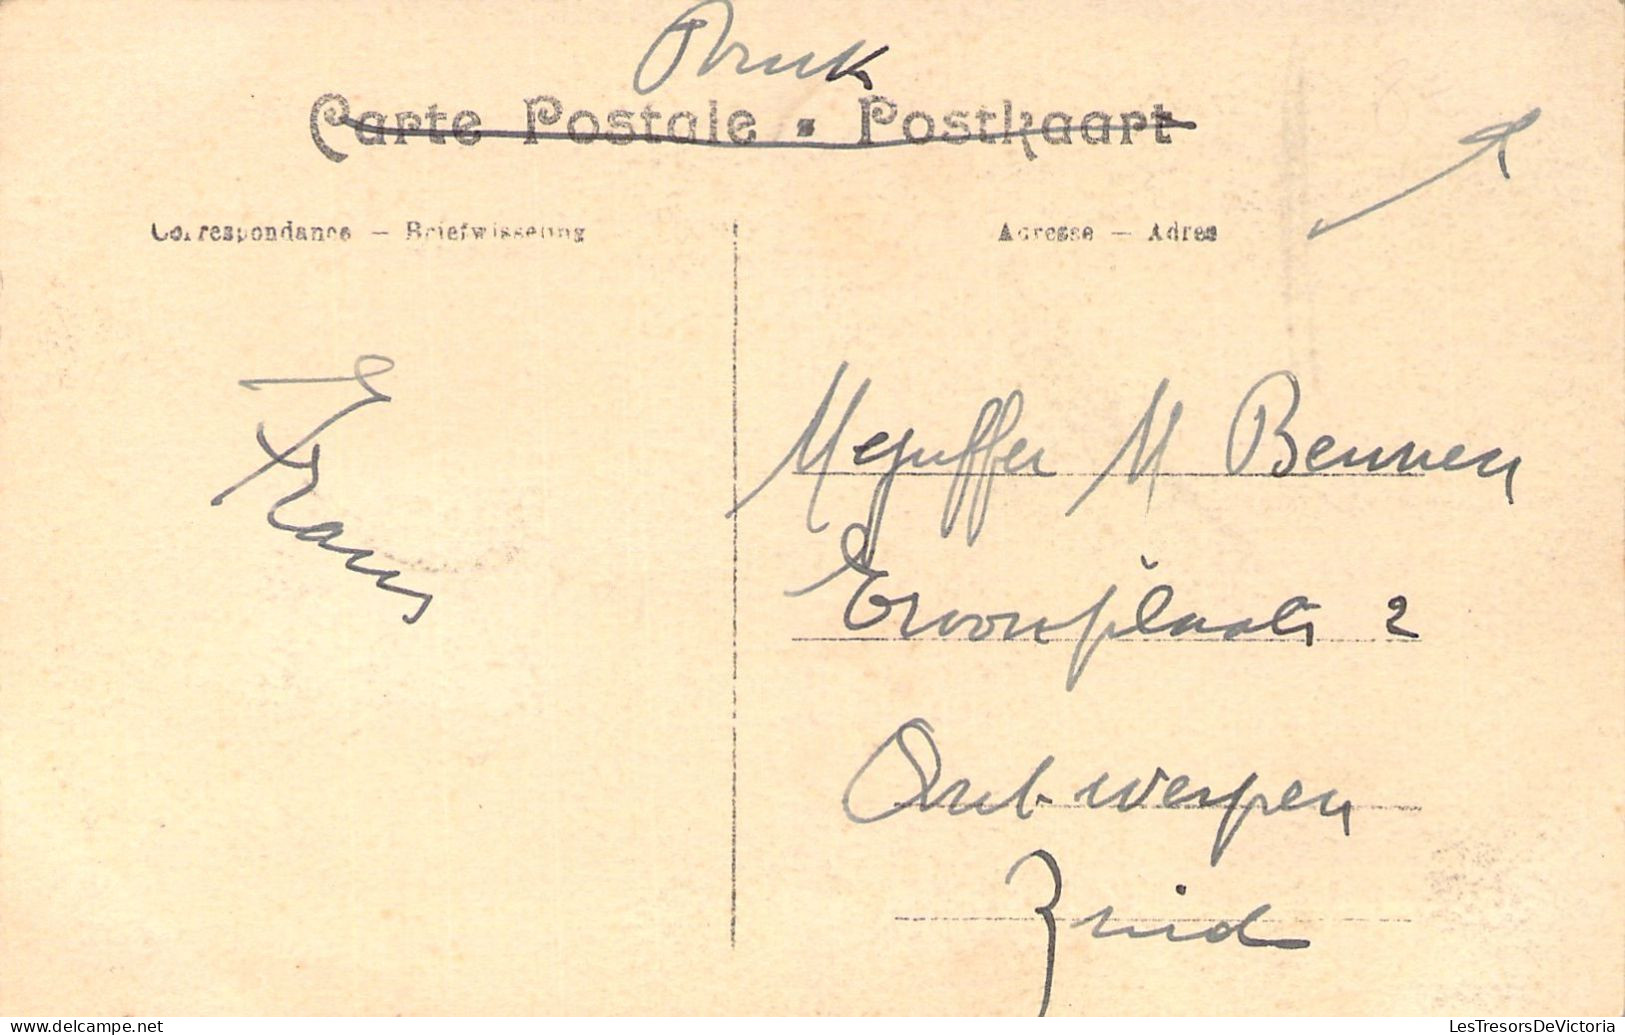 Druk
Carte Postale • Postkaart
Correspondance — Briefwisseling
Adresse — Adres
Frans
Mejuffer M Bennen
Troonplaats 2
Antwerpen
Zuid
LesTresorsDeVictoria
delcampe.net